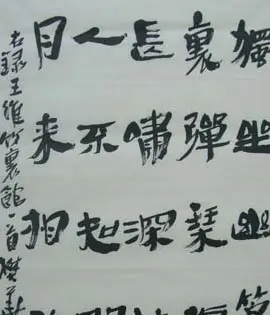 獨坐幽
裏彈琹
長嘯深
人不知
月来相
右錄王維竹裏館一首